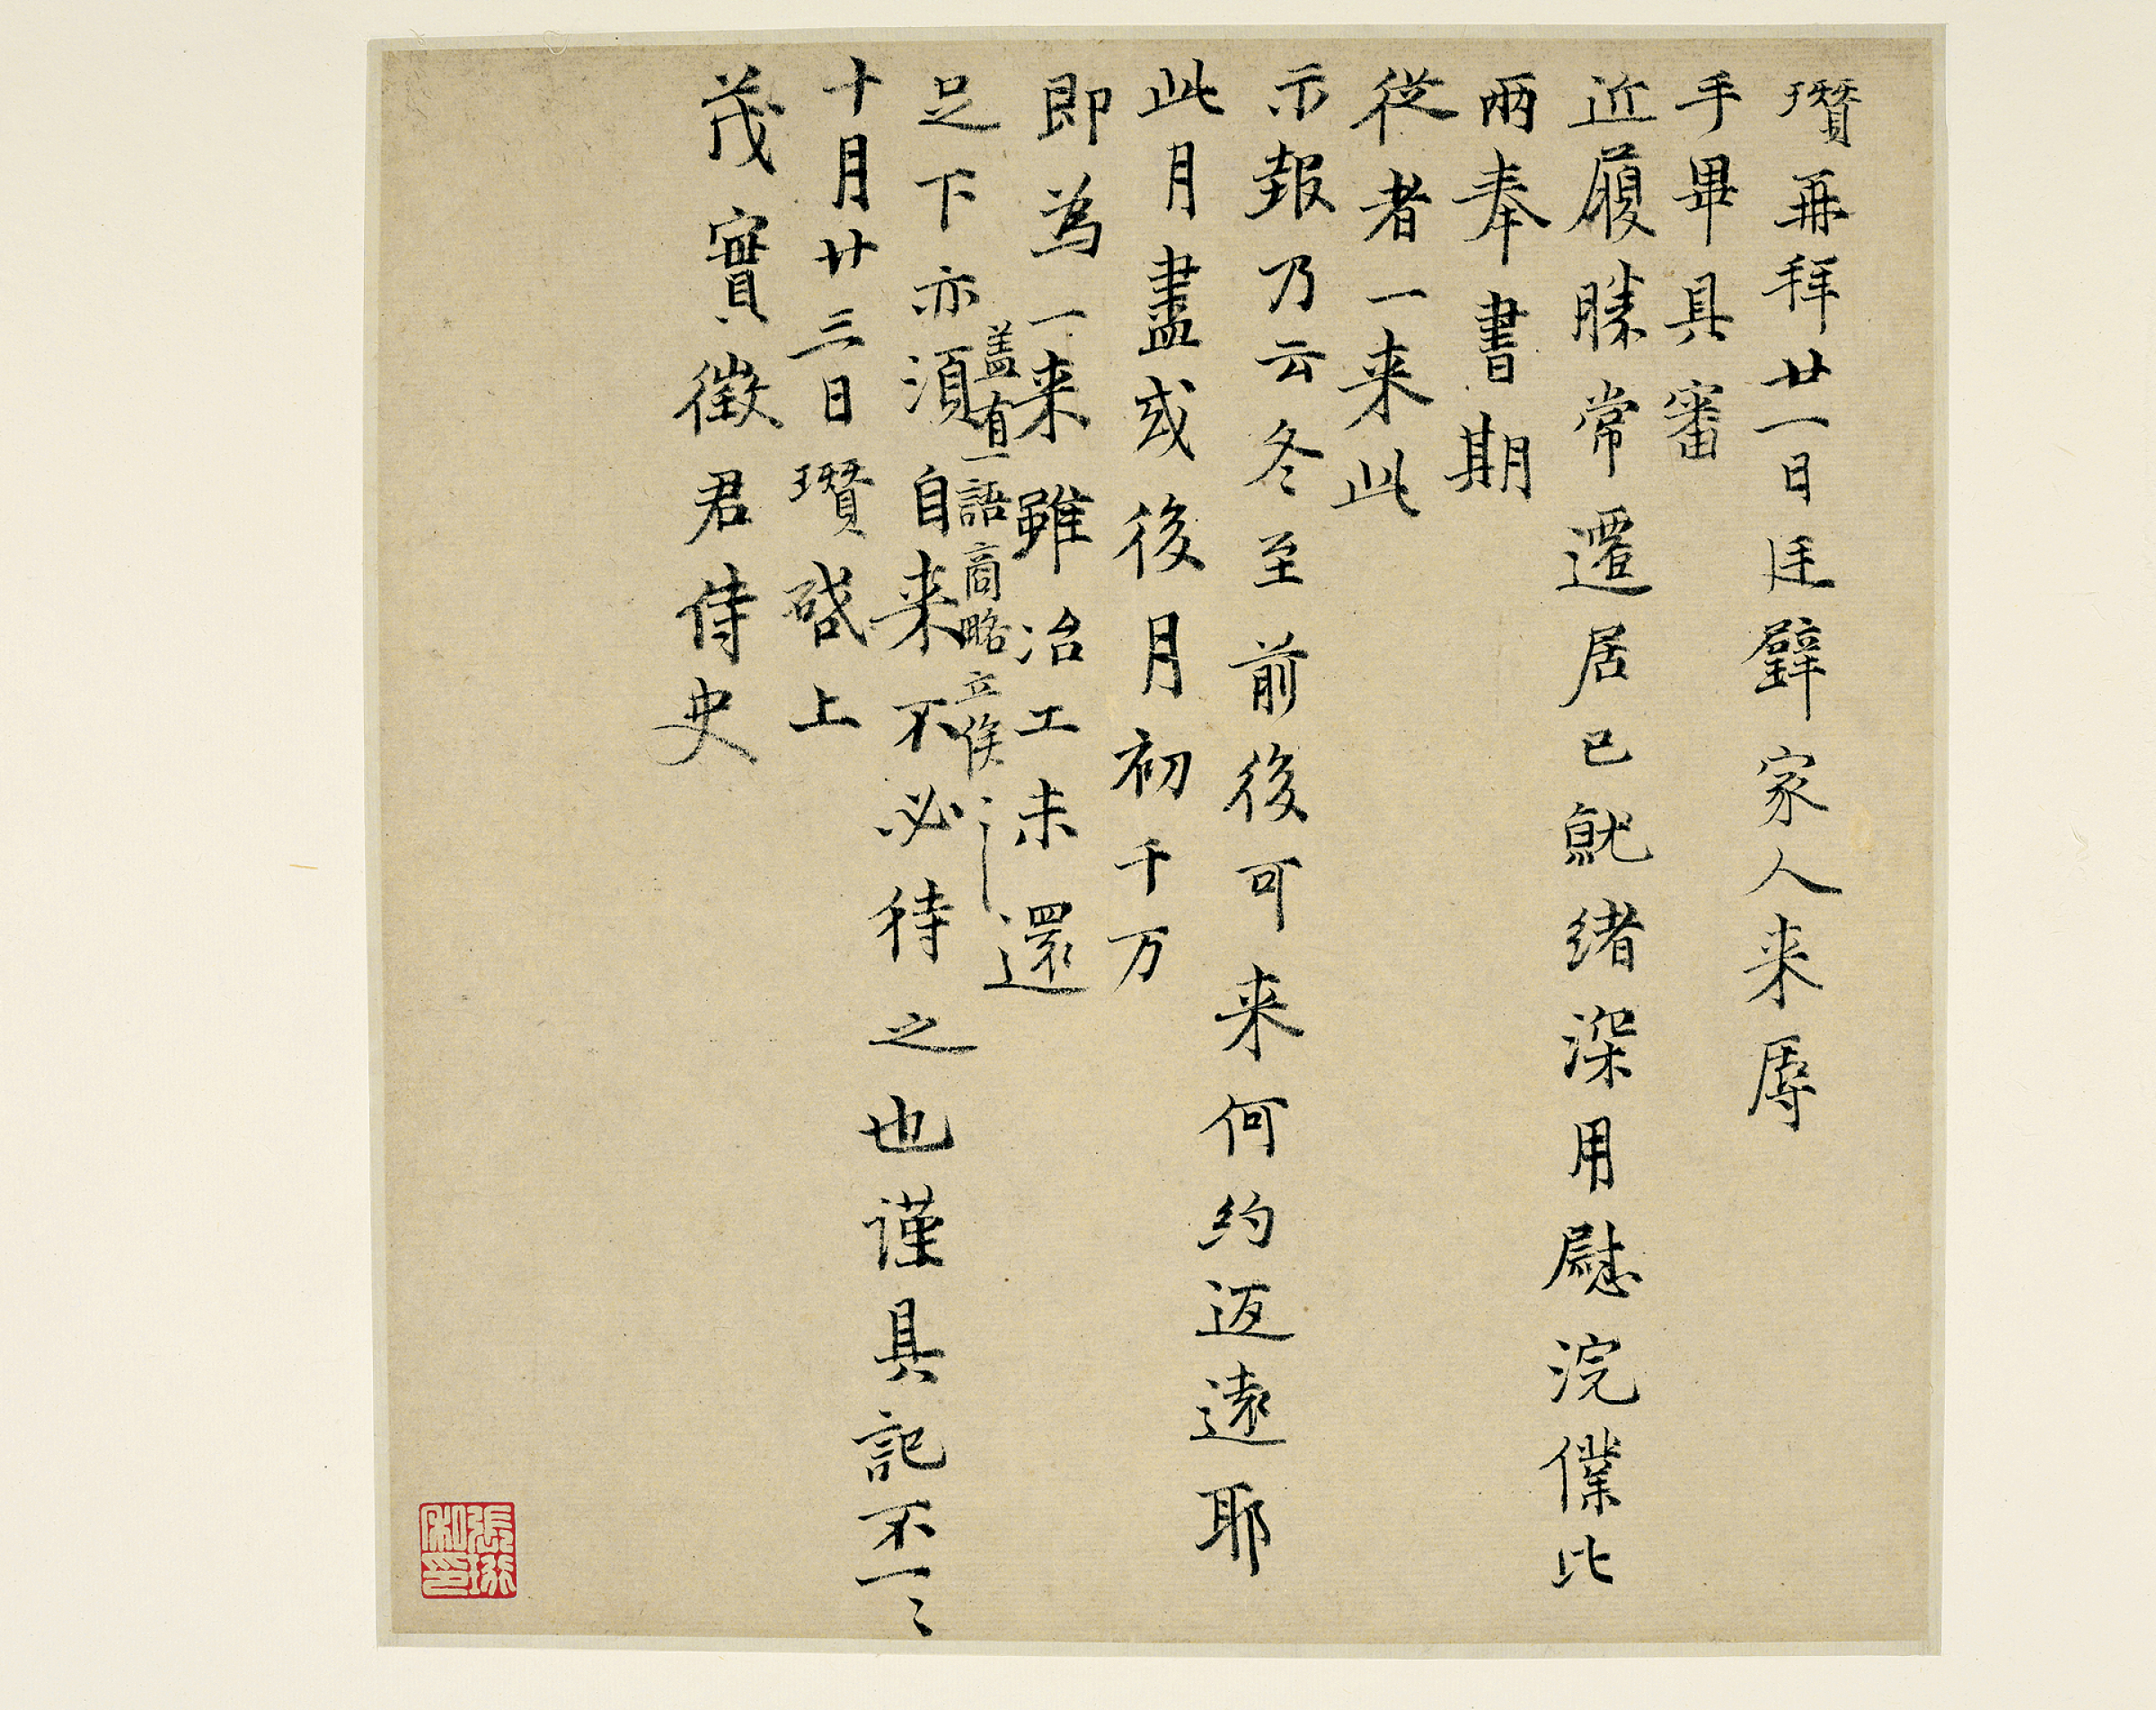 瓚再拜廿一日廷璧家人来辱
手畢具審
近履勝常遷居已就緒深用慰浣僕比
兩奉書期
從者一来此
示報乃云冬至前後可来何約返遠耶
此月盡或後月初千万
即為一来雖冶工未還
盖有一語商略立俟之
足下亦須自来不必待之也谨具記不一〻
十月廿三日瓚啓上
茂實徵君侍史